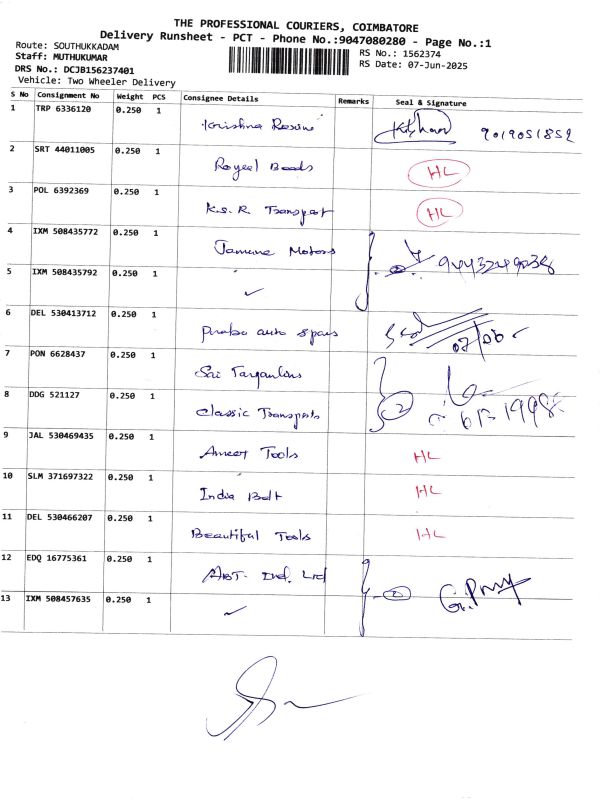 THE PROFESSIONAL COURIERS, COIMBATORE
Delivery Runsheet - PCT - Phone No.:9047080280 - Page No.:1
Route: SOUTHUKKADAM
Staff: MUTHUKUMAR
DRS No.: DCJB156237401
Vehicle: Two Wheeler Delivery
RS No.: 1562374
RS Date: 07-Jun-2025
S No Consignment No Weight PCS Consignee Details Remarks Seal & Signature
1 TRP 6336120 0.250 1 Krishna Resins 9019051852
2 SRT 44011005 0.250 1 Royeel Beads HL
3 POL 6392369 0.250 1 K.S.R Transport HL
4 IXM 508435772 0.250 1 Jamuna Motors
5 IXM 508435792 0.250 1 ✓
6 DEL 530413712 0.250 1 Praba auto Spars
7 PON 6628437 0.250 1 Sri Tarpaulins
8 DDG 521127 0.250 1 Classic Transports 2
9 JAL 530469435 0.250 1 Ameer Tools HL
10 SLM 371697322 0.250 1 India Bolt HL
11 DEL 530466207 0.250 1 Beautiful Tools HL
12 EDQ 16775361 0.250 1 ABT. Ind. Ltd 2
13 IXM 508457635 0.250 1 ✓